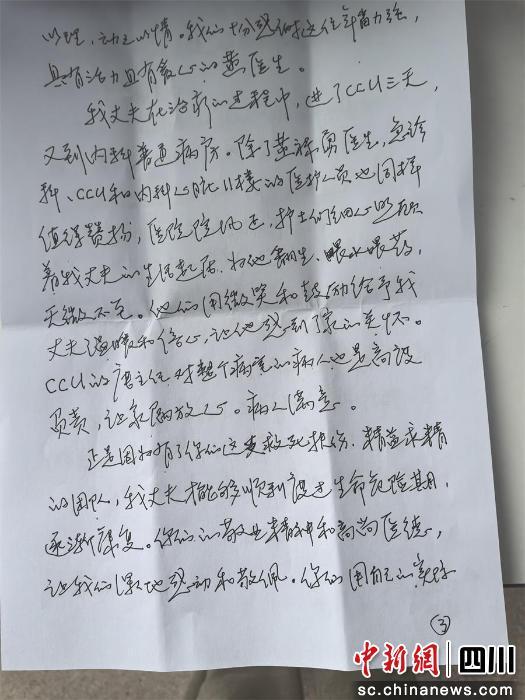 以理，动之以情。我们十分感谢这位年富力强，
具有活力且有爱心的黄医生。
我丈夫在治疗的过程中，进了CCU三天，
又到内科普通病房。除了黄 医生，急诊
科、CCU和内科心脏11楼的医护人员也同样
值得赞扬，医院院风正，护士们细心照顾
着我丈夫的生活起居，为他翻身、喂水喂药，
无微不至。他们用微笑和鼓励给予我
丈夫温暖和信心，让他感到了家的关怀。
CCU的唐主任对整个病区的病人也是高度
负责，让家属放心。病人满意。
正是因为有了你们这支救死扶伤、精益求精
的团队，我丈夫才能够顺利度过生命危险期，
逐渐康复。你们的敬业精神和高尚医德，
让我们深深地感动和敬佩。你们用自己的实际
③
中新網 四川
sc.chinanews.com